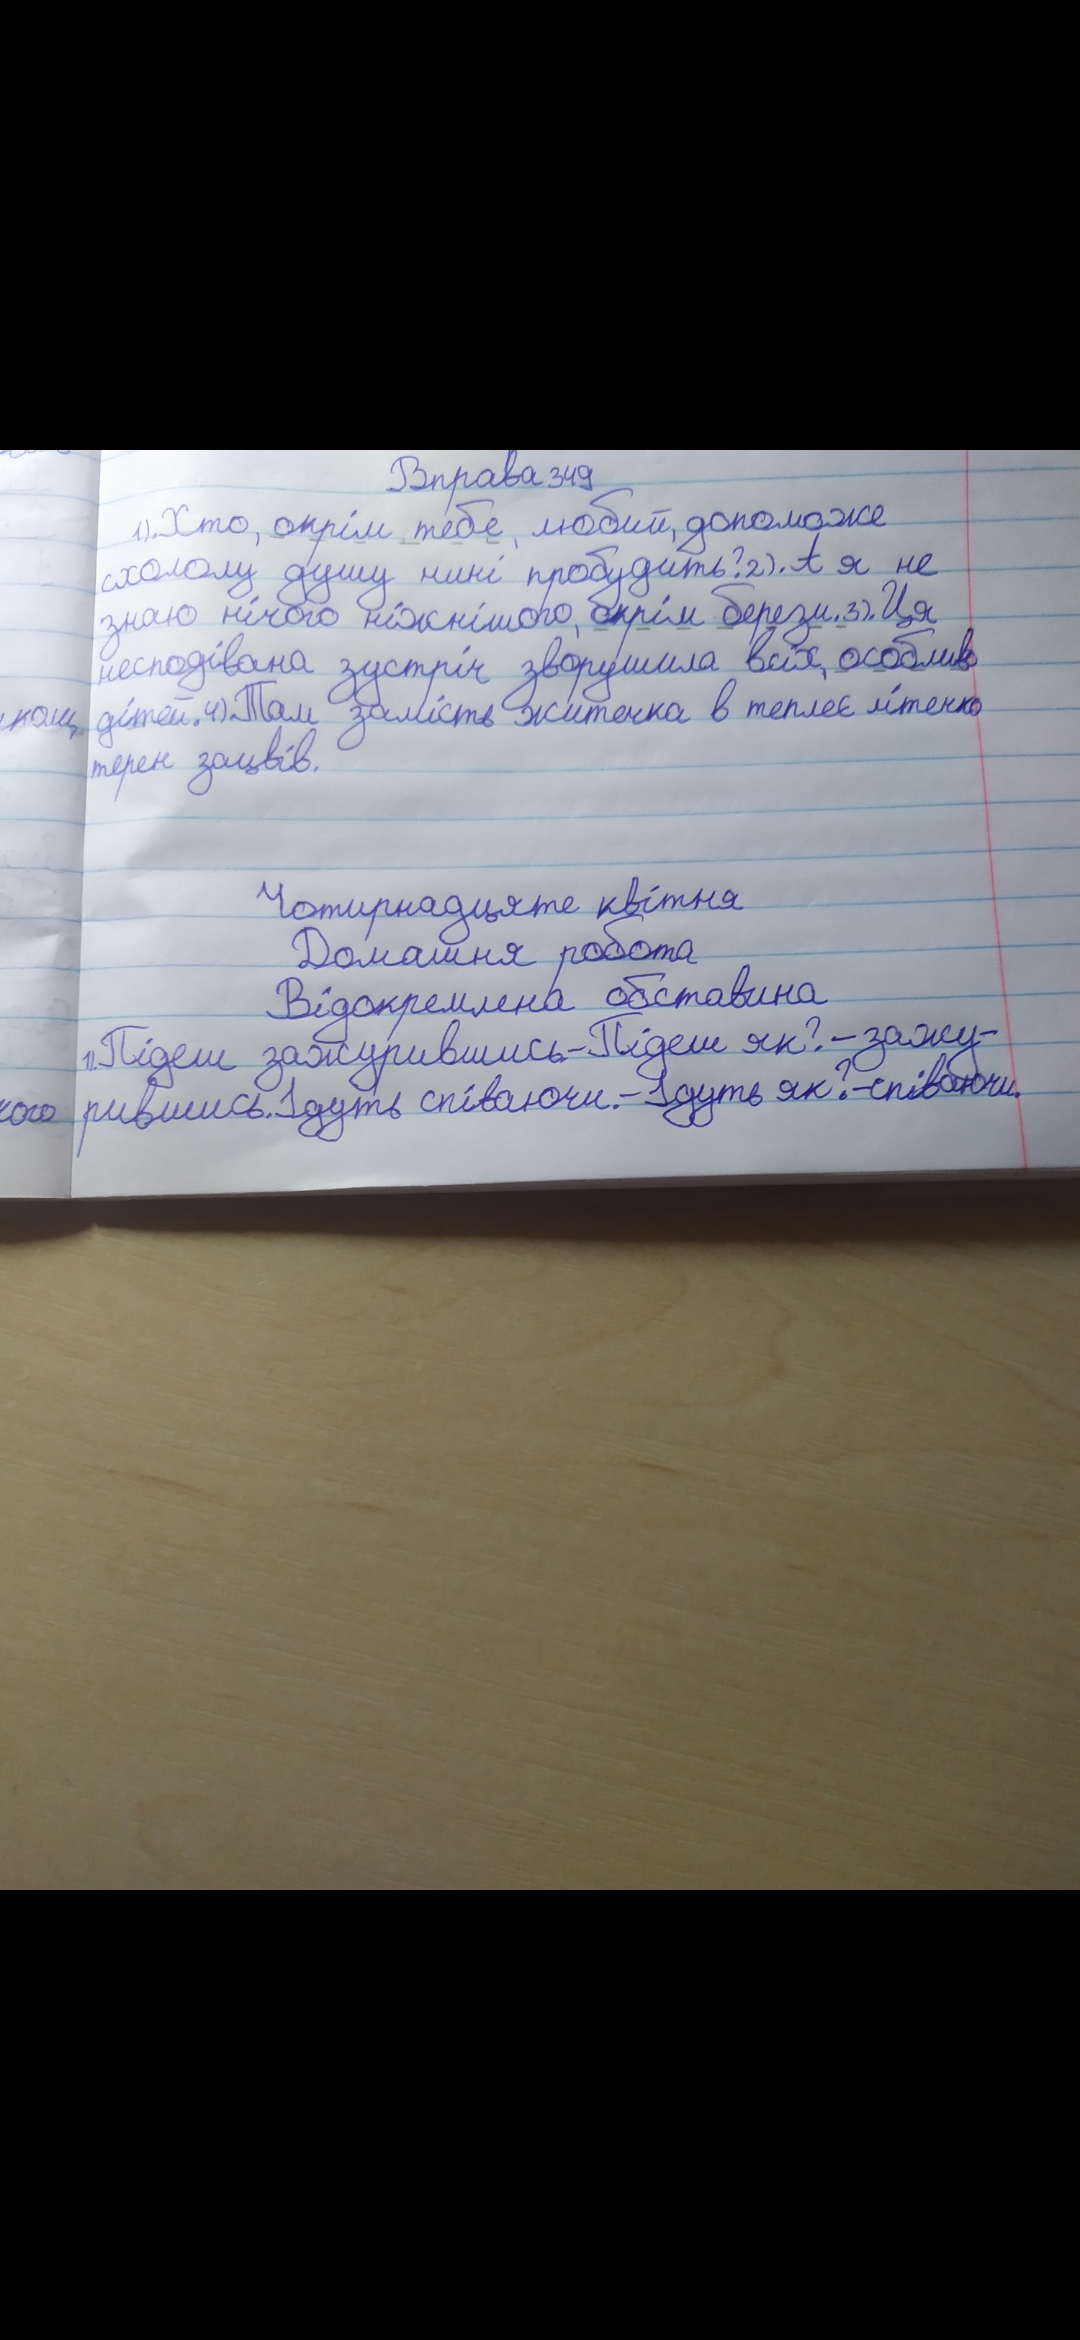 Вправа 349
1).Хто, окрім тебе, любий, допоможе
схололу душу нині пробудить? 2). А я не
знаю нічого ніжнішого, окрім берези. 3). Ця
несподівана зустріч зворушила всіх, особливо
дітей. 4) Там замість житечка в теплеє літечко
терен зацвів.
Чотирнадцяте квітня
Домашня робота
Відокремлена обставина
1).Підеш зажурившись-Підеш як?-зажу-
рившись. Ідуть співаючи.-Ідуть як?-співаючи.